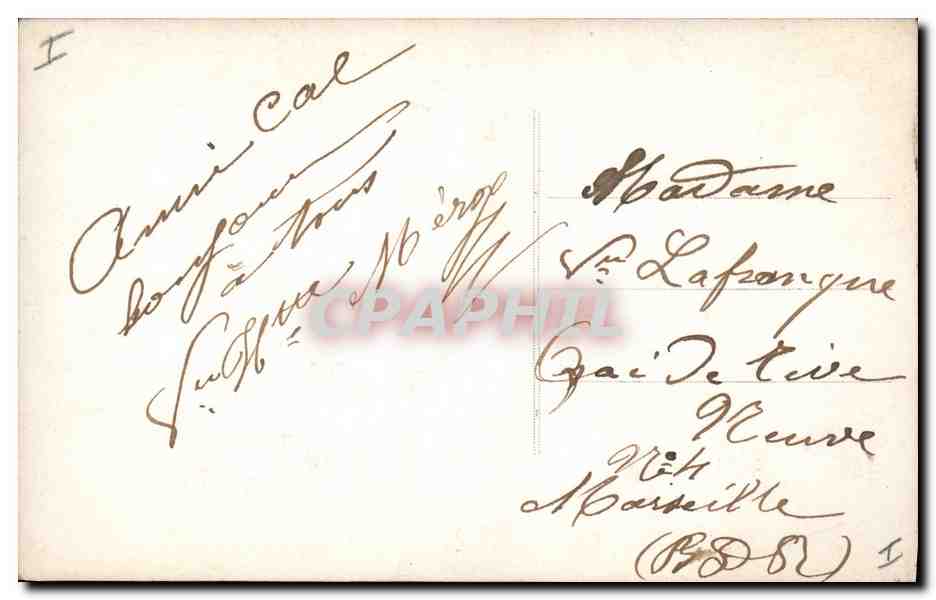 I
Amical
bonjour
à tous
Vu
CPAPHIL
Madame
Vu Lafrangue
Quai de Rive
Neuve
N° 4
Marseille
(B D R)
I